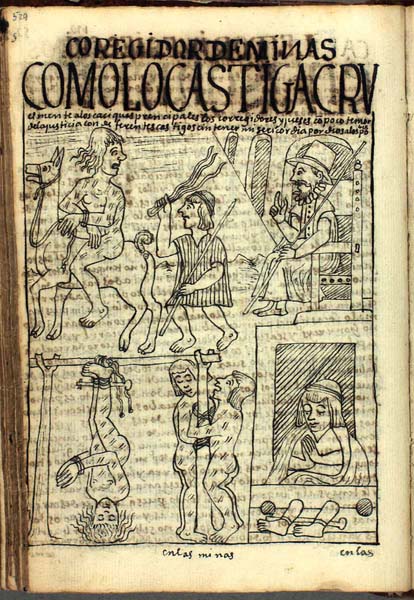 529
COREGIDOR DE MINAS
COMO LO CASTIGA CRV
elmente a los caciques prencipales los corregidores y jueses co poco temor
de la justicia con deferentes castigos cin tener misericordia por dios a los pobres
en las minas
en las